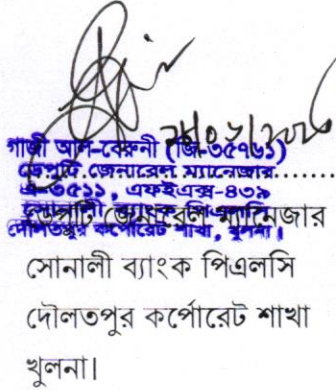 গাজী আল-বেরুনী (জি-৩৫৭৬১)
ডেপুটি জেনারেল ম্যানেজার
এ-৩৫১১, এফইএক্স-৪৩৯
সোনালী ব্যাংক পিএলসি
দৌলতপুর কর্পোরেট শাখা, খুলনা।
ডেপুটি জেনারেল ম্যানেজার
সোনালী ব্যাংক পিএলসি
দৌলতপুর কর্পোরেট শাখা
খুলনা।